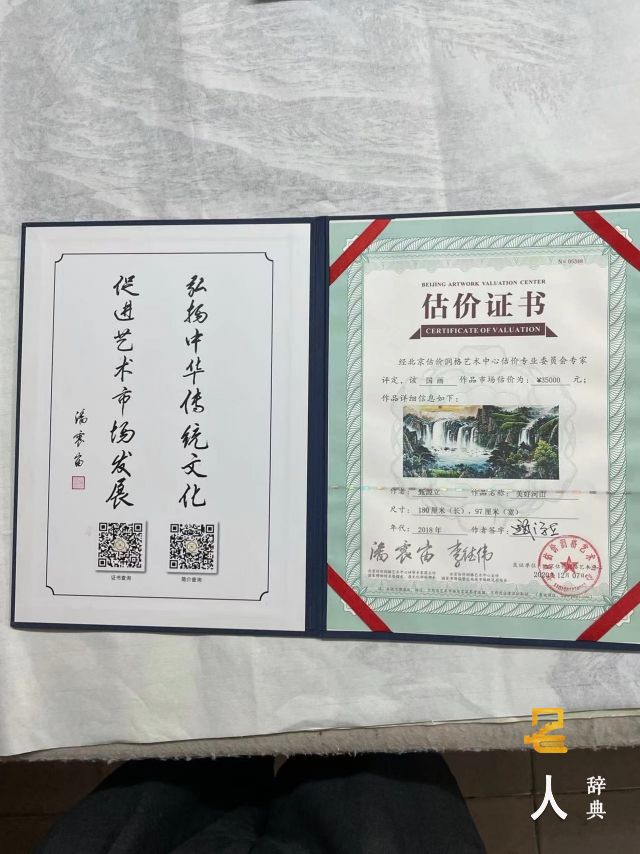 弘扬中华传统文化
促进艺术市场发展
潘震宙
证书查询
简介查询
№ 05348
BEIJING ARTWORK VALUATION CENTER
估价证书
CERTIFICATE OF VALUATION
经北京估价润格艺术中心估价专业委员会专家
评定，该 国画 作品市场估价为：¥35000 元；
作品详细信息如下：
作者：甄源立 作品名称：美好河山
尺寸：180厘米（长），97厘米（宽）
年代：2018年 作者签字：
潘震宙 李健伟
2020年12月07日
名
人
辞典